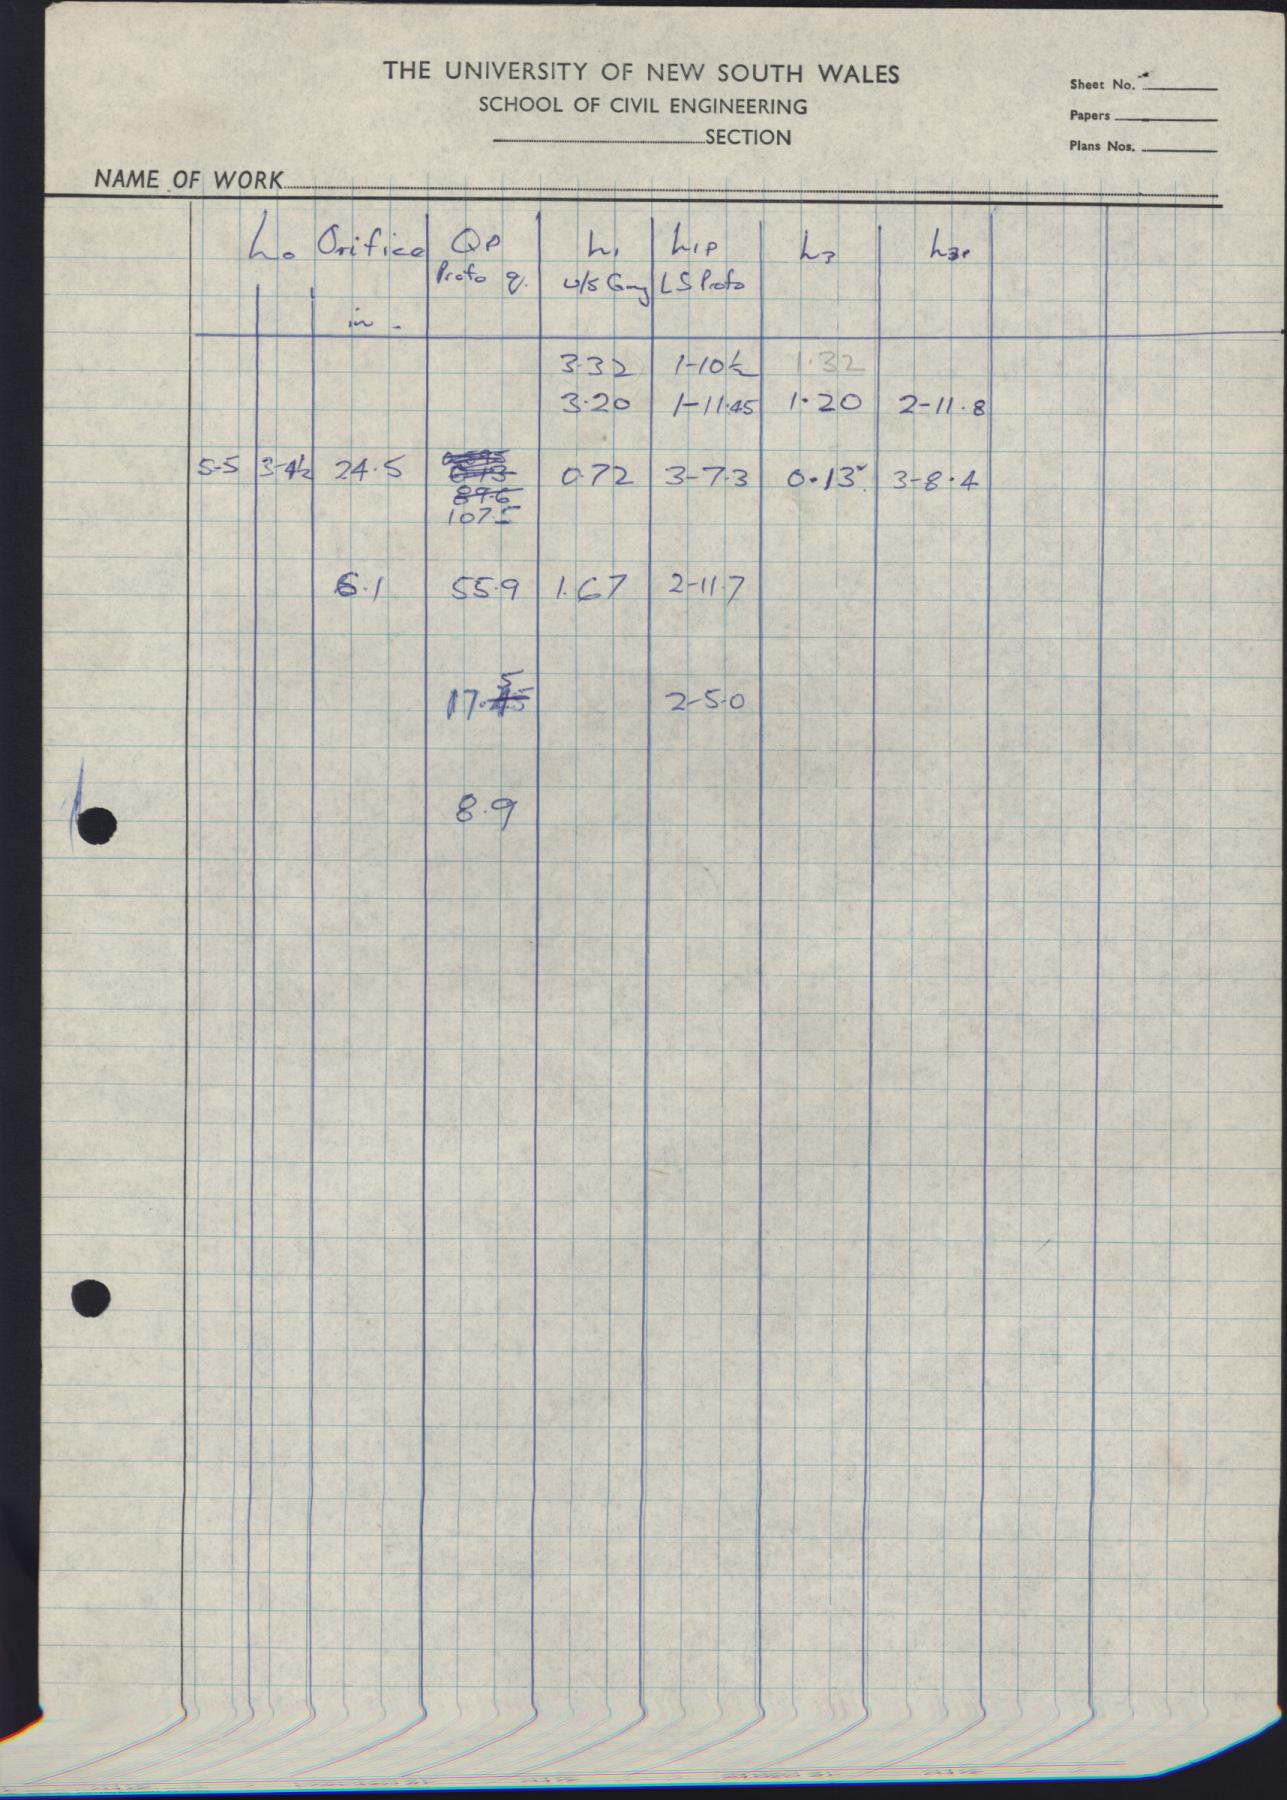 THE UNIVERSITY OF NEW SOUTH WALES
SCHOOL OF CIVIL ENGINEERING
SECTION
Sheet No.
Papers
Plans Nos.
NAME OF WORK
h0 Orifice QP h1 h1P h3 h3P
Proto q. u/s LS Proto
in -
3.32 1-10½ 1.32
3.20 1-11.45 1.20 2-11.8
5-5 3-4½ 24.5 0.72 3-7.3 0.13 3-8.4
89.6
107.5
6.1 55.9 1.67 2-11.7
17.5 2-5.0
8.9